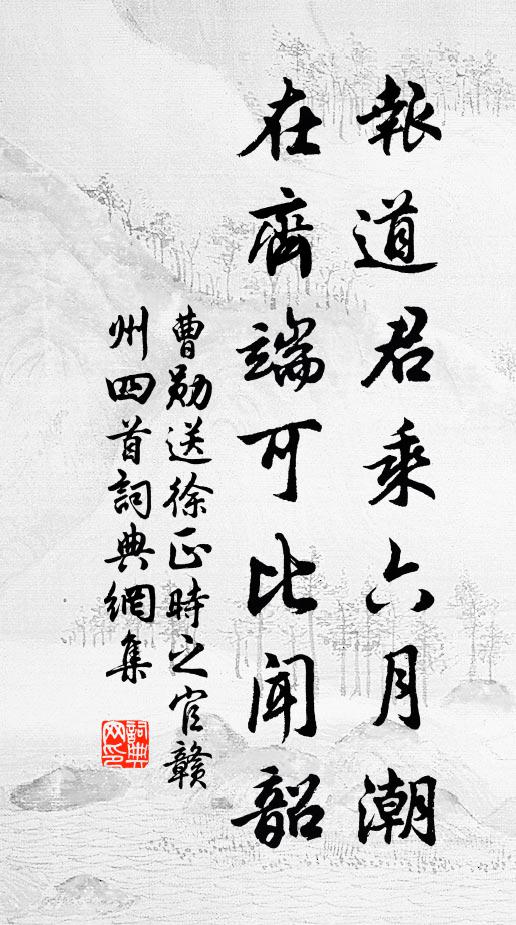 報道君乘六月潮
在齊端可比聞韶
曹勛送徐正時之官贛
州四首詞典網集
詞典网印